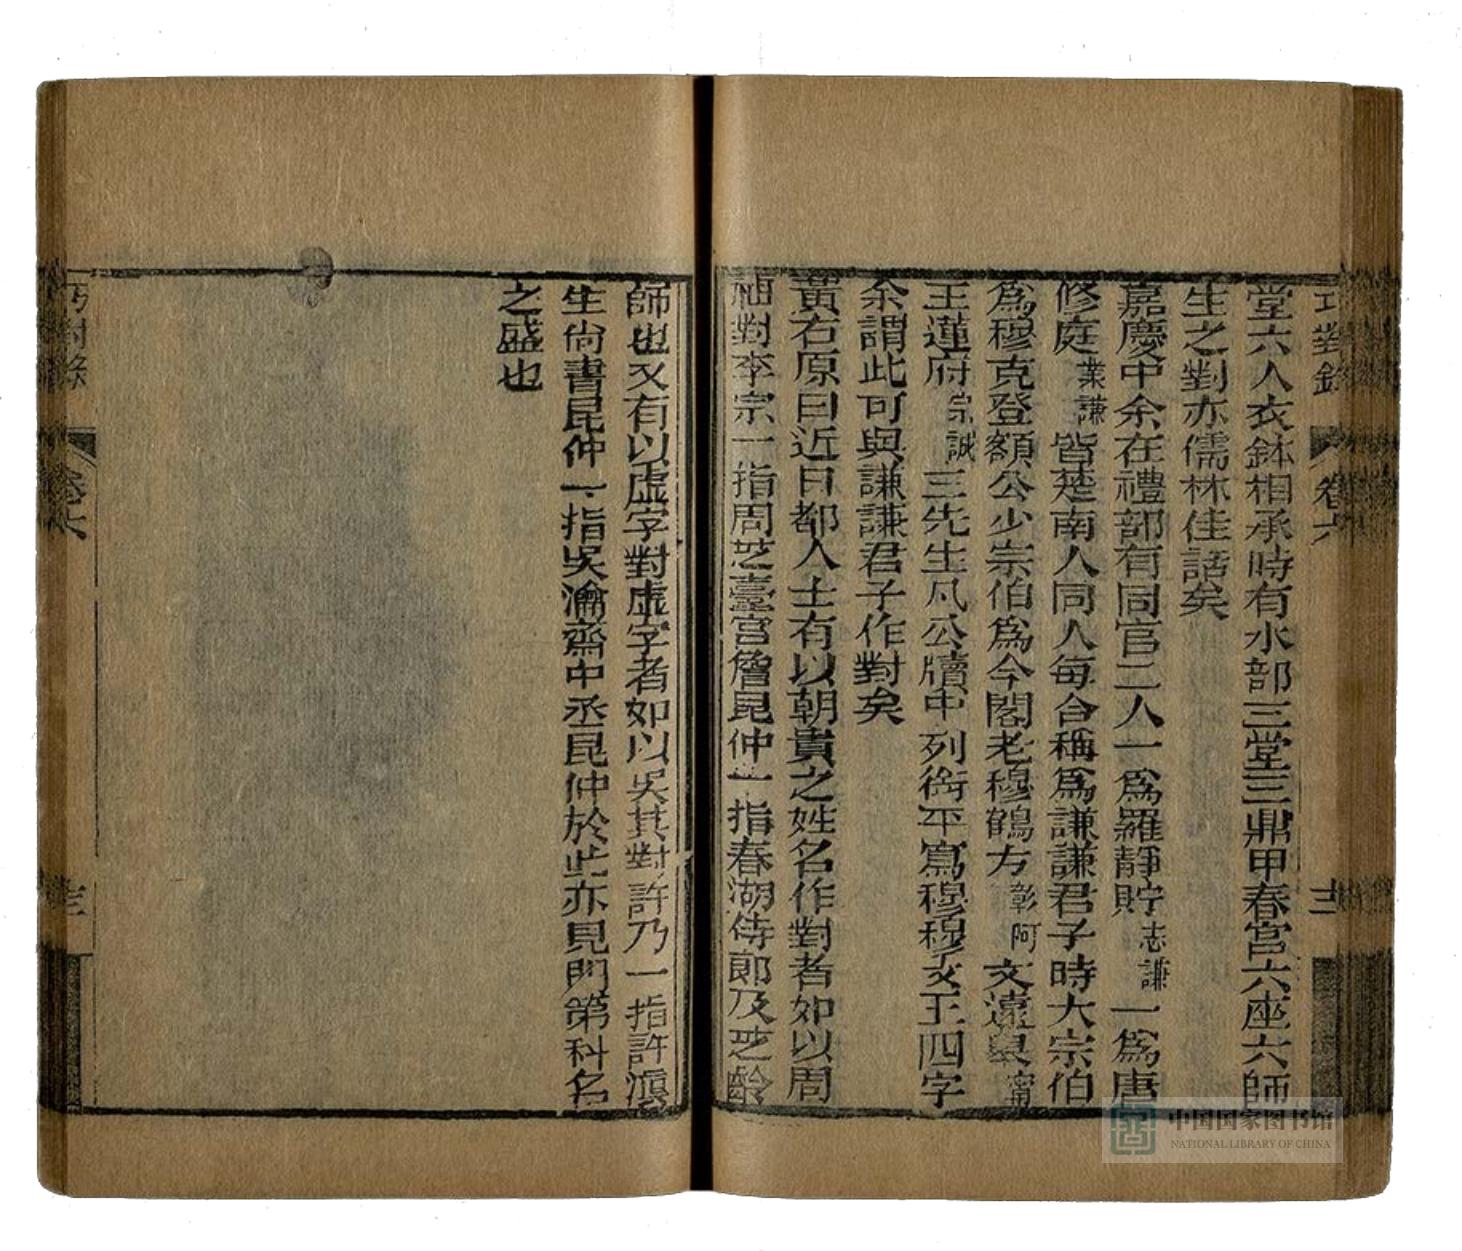 巧對錄 卷六 三
堂六人衣鉢相承時有水部三堂三鼎甲春官六座六師
生之對亦儒林佳話矣
嘉慶中余在禮部有同官二人一爲羅靜貯志謙一爲唐
修庭業謙皆楚南人同人每合稱爲謙謙君子時大宗伯
爲穆克登額公少宗伯爲今閣老穆鶴方彰阿文遠皋甯
王蓮府宗誠三先生凡公牘中列銜平寫穆穆文王四字
余謂此可與謙謙君子作對矣
黃右原曰近日都人士有以朝貴之姓名作對者如以周
祖對李宗一指周芝臺宮詹昆仲一指春湖侍郎及芝齡
師也又有以虛字對虛字者如以吳其對許乃一指許滇
生尙書昆仲一指吳瀹齋中丞昆仲於此亦見門第科名
之盛也
巧對錄 卷六 三
中国国家图书馆
NATIONAL LIBRARY OF CHINA